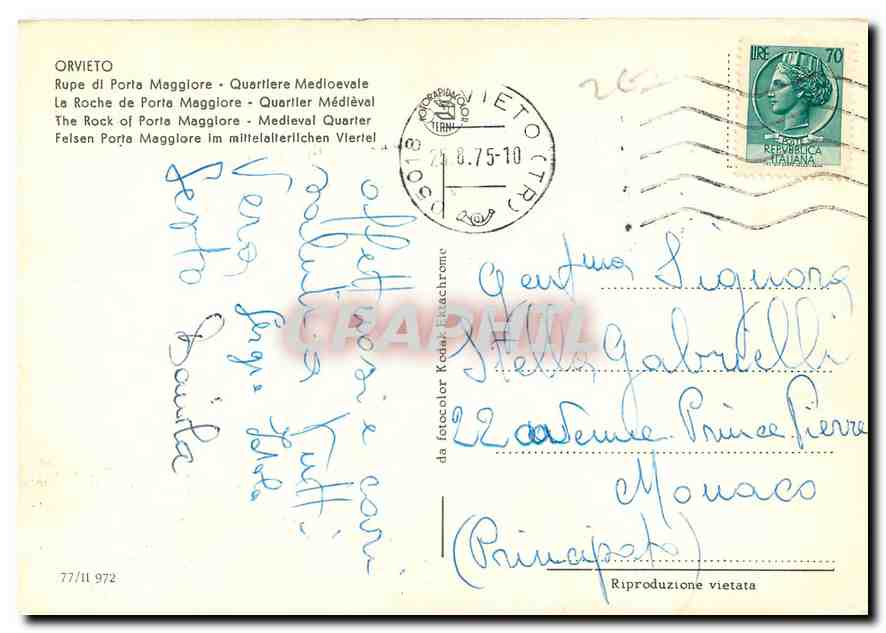 ORVIETO
Rupe di Porta Maggiore - Quartiere Medioevale
La Roche de Porta Maggiore - Quartier Médièval
The Rock of Porta Maggiore - Medieval Quarter
Felsen Porta Maggiore im mittelalterlichen Viertel
LIRE 70
POSTE
REPVBBLICA
ITALIANA
05018 ORVIETO (TR)
25.8.75-10
TERNI
affettuosi e cari
saluti a tutti
Vera Sergio Italo
Danila
CPAPHIL
da fotocolor Kodak Ektachrome
Gent.ma Signora
Stella Gabrielli
22 avenue Prince Pierre
Monaco
(Principato)
77/II 972
Riproduzione vietata